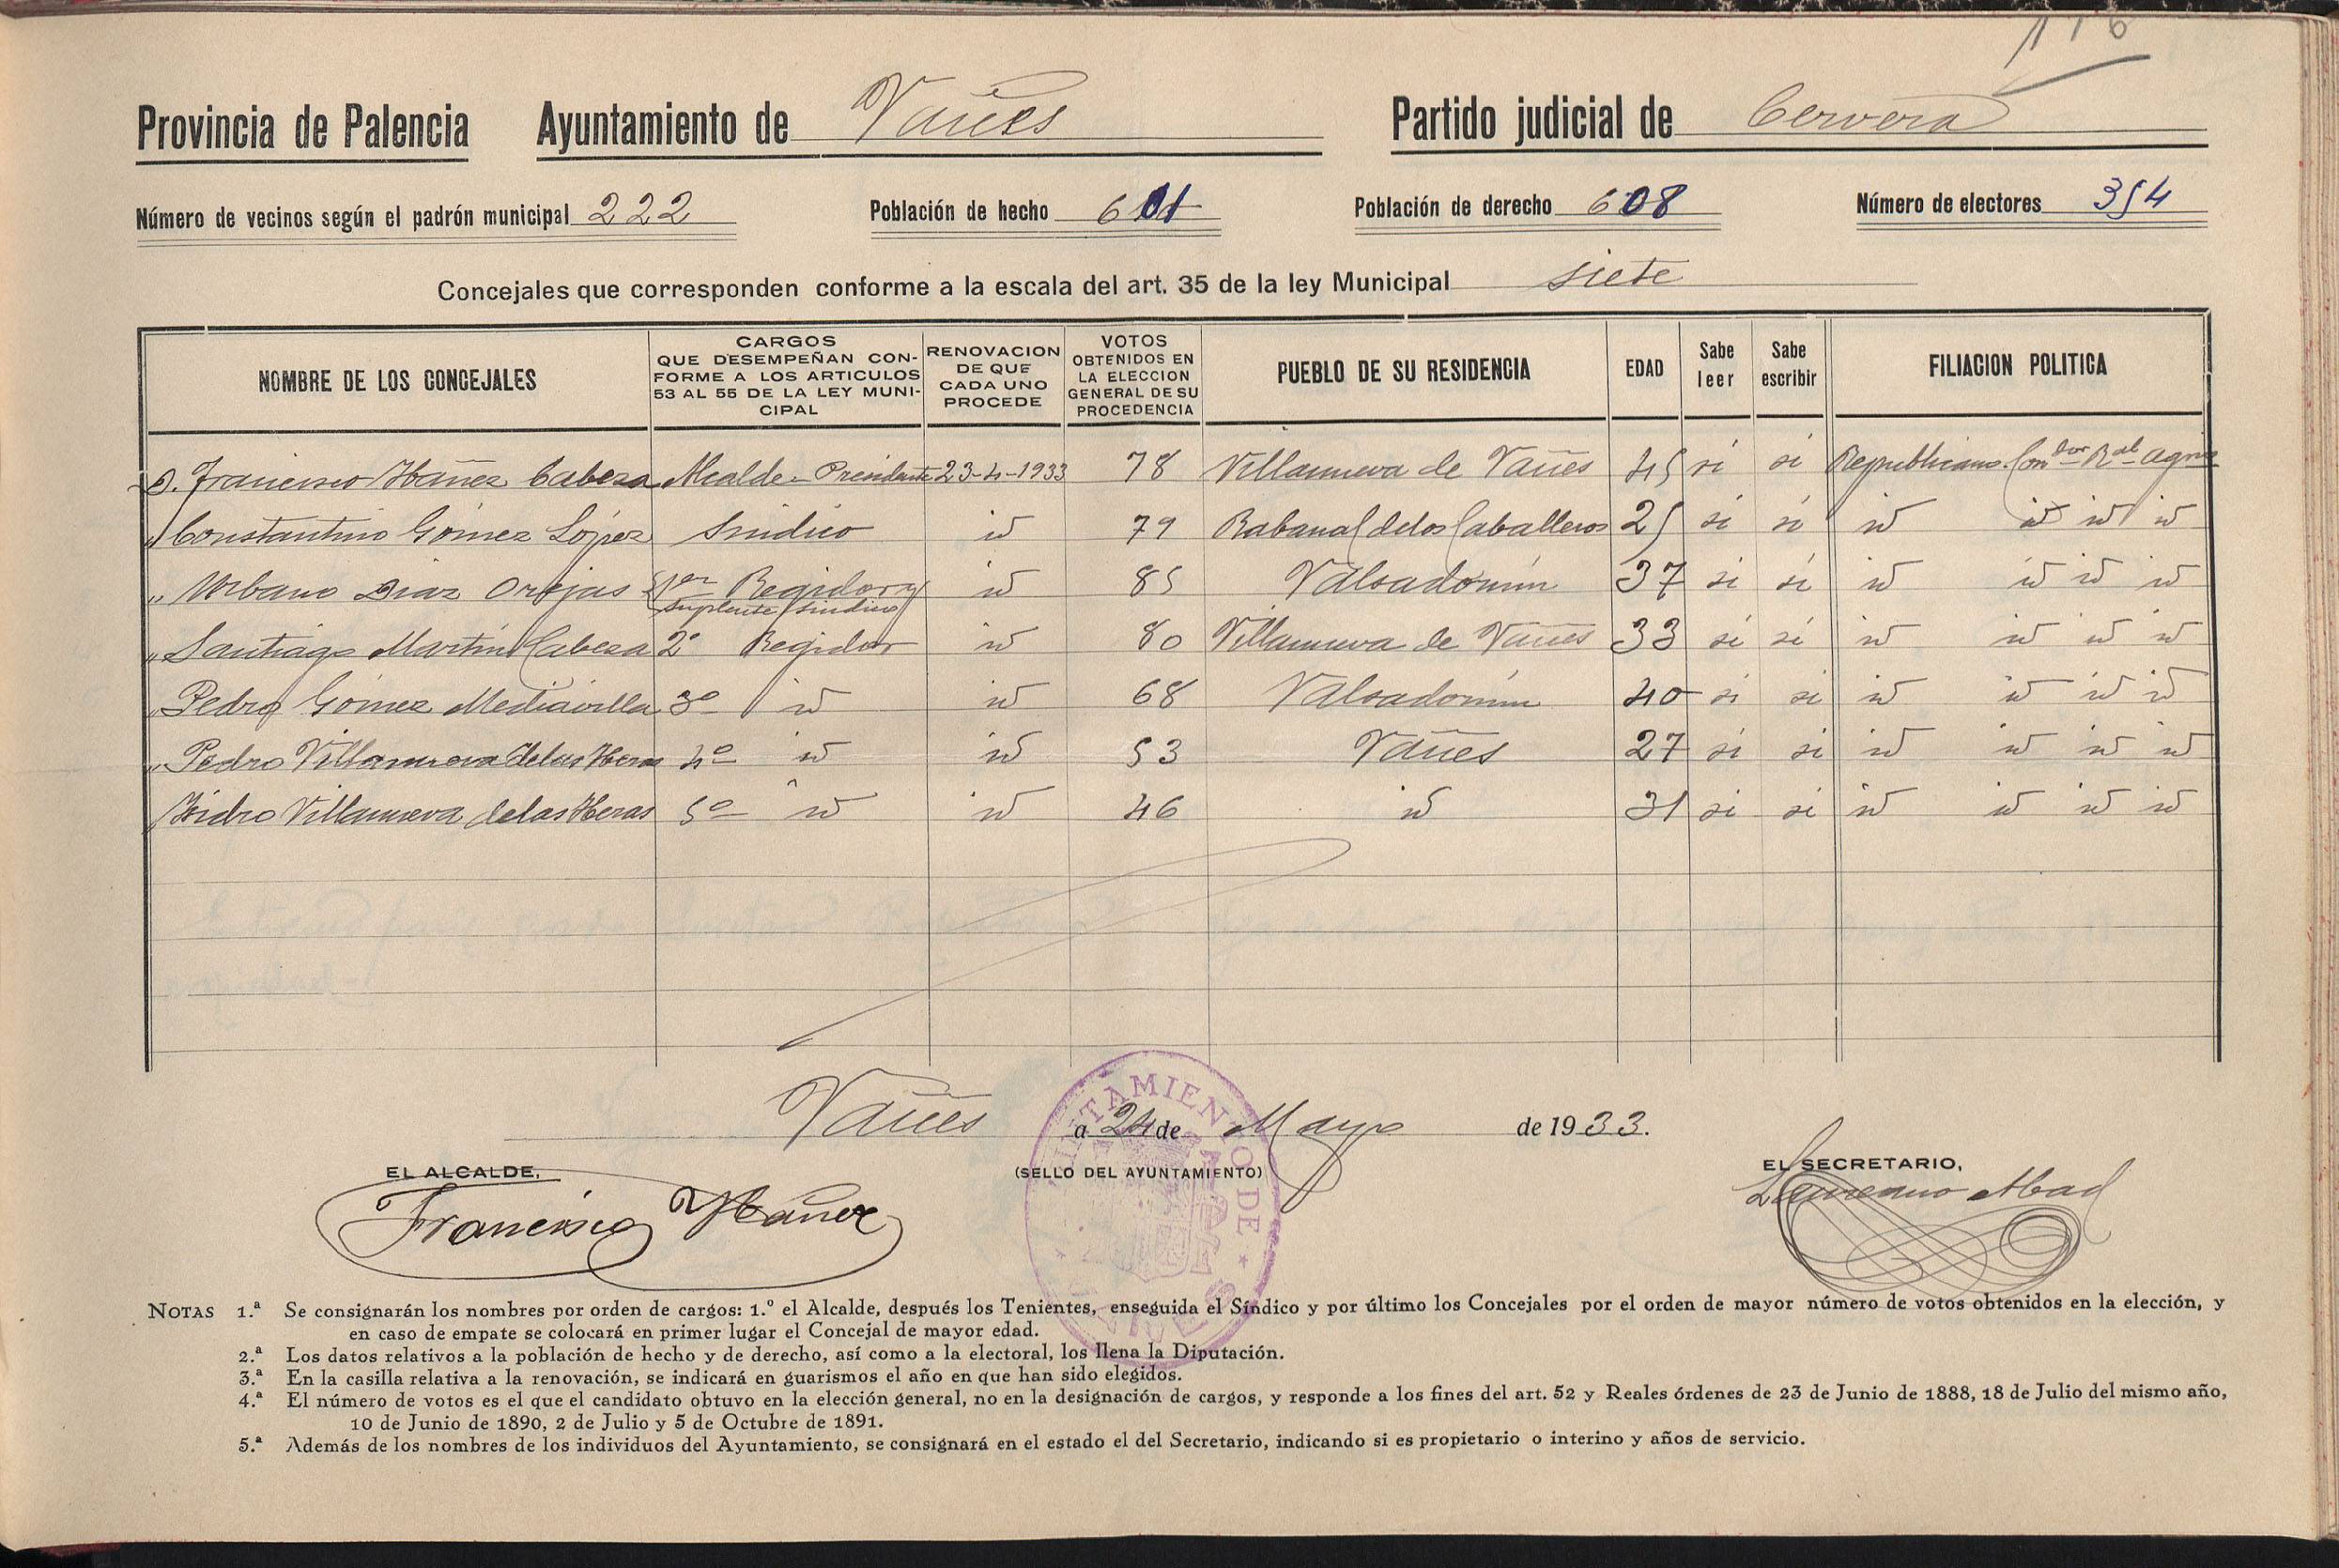 116
Provincia de Palencia Ayuntamiento de Vañes Partido judicial de Cervera
Número de vecinos según el padrón municipal 222 Población de hecho 601 Población de derecho 608 Número de electores 354
Concejales que corresponden conforme a la escala del art. 35 de la ley Municipal siete
NOMBRE DE LOS CONCEJALES CARGOS QUE DESEMPEÑAN CONFORME A LOS ARTICULOS 53 AL 55 DE LA LEY MUNICIPAL RENOVACION DE QUE CADA UNO PROCEDE VOTOS OBTENIDOS EN LA ELECCION GENERAL DE SU PROCEDENCIA PUEBLO DE SU RESIDENCIA EDAD Sabe leer Sabe escribir FILIACION POLITICA
D. Francisco Ibañez Cabeza Alcalde-Presidente 23-4-1933 78 Villanueva de Vañes 45 si si Republicano Con.dor R.al agrio
" Constantino Gómez López Sindico id 79 Rabanal de los Caballeros 25 si si id id id id
" Urbano Diaz Orejas 1er Regidor y id 85 Valsadornín 37 si si id id id id
Suplente sindico
" Santiago Martin Cabeza 2º Regidor id 80 Villanueva de Vañes 33 si si id id id id
" Pedro Gómez Mediavilla 3º id id 68 Valsadornín 40 si si id id id id
" Pedro Villanueva de las Heras 4º id id 53 Vañes 27 si si id id id id
Isidro Villanueva de las Heras 5º id id 46 id 31 si si id id id id
Vañes a 24 de Mayo de 1933.
EL ALCALDE, (SELLO DEL AYUNTAMIENTO) EL SECRETARIO,
Francisco Ibañez Laureano Abad
AYUNTAMIENTO DE VAÑES
NOTAS 1.ª Se consignarán los nombres por orden de cargos: 1.º el Alcalde, después los Tenientes, enseguida el Síndico y por último los Concejales por el orden de mayor número de votos obtenidos en la elección, y
en caso de empate se colocará en primer lugar el Concejal de mayor edad.
2.ª Los datos relativos a la población de hecho y de derecho, así como a la electoral, los llena la Diputación.
3.ª En la casilla relativa a la renovación, se indicará en guarismos el año en que han sido elegidos.
4.ª El número de votos es el que el candidato obtuvo en la elección general, no en la designación de cargos, y responde a los fines del art. 52 y Reales órdenes de 23 de Junio de 1888, 18 de Julio del mismo año,
10 de Junio de 1890, 2 de Julio y 5 de Octubre de 1891.
5.ª Además de los nombres de los individuos del Ayuntamiento, se consignará en el estado el del Secretario, indicando si es propietario o interino y años de servicio.